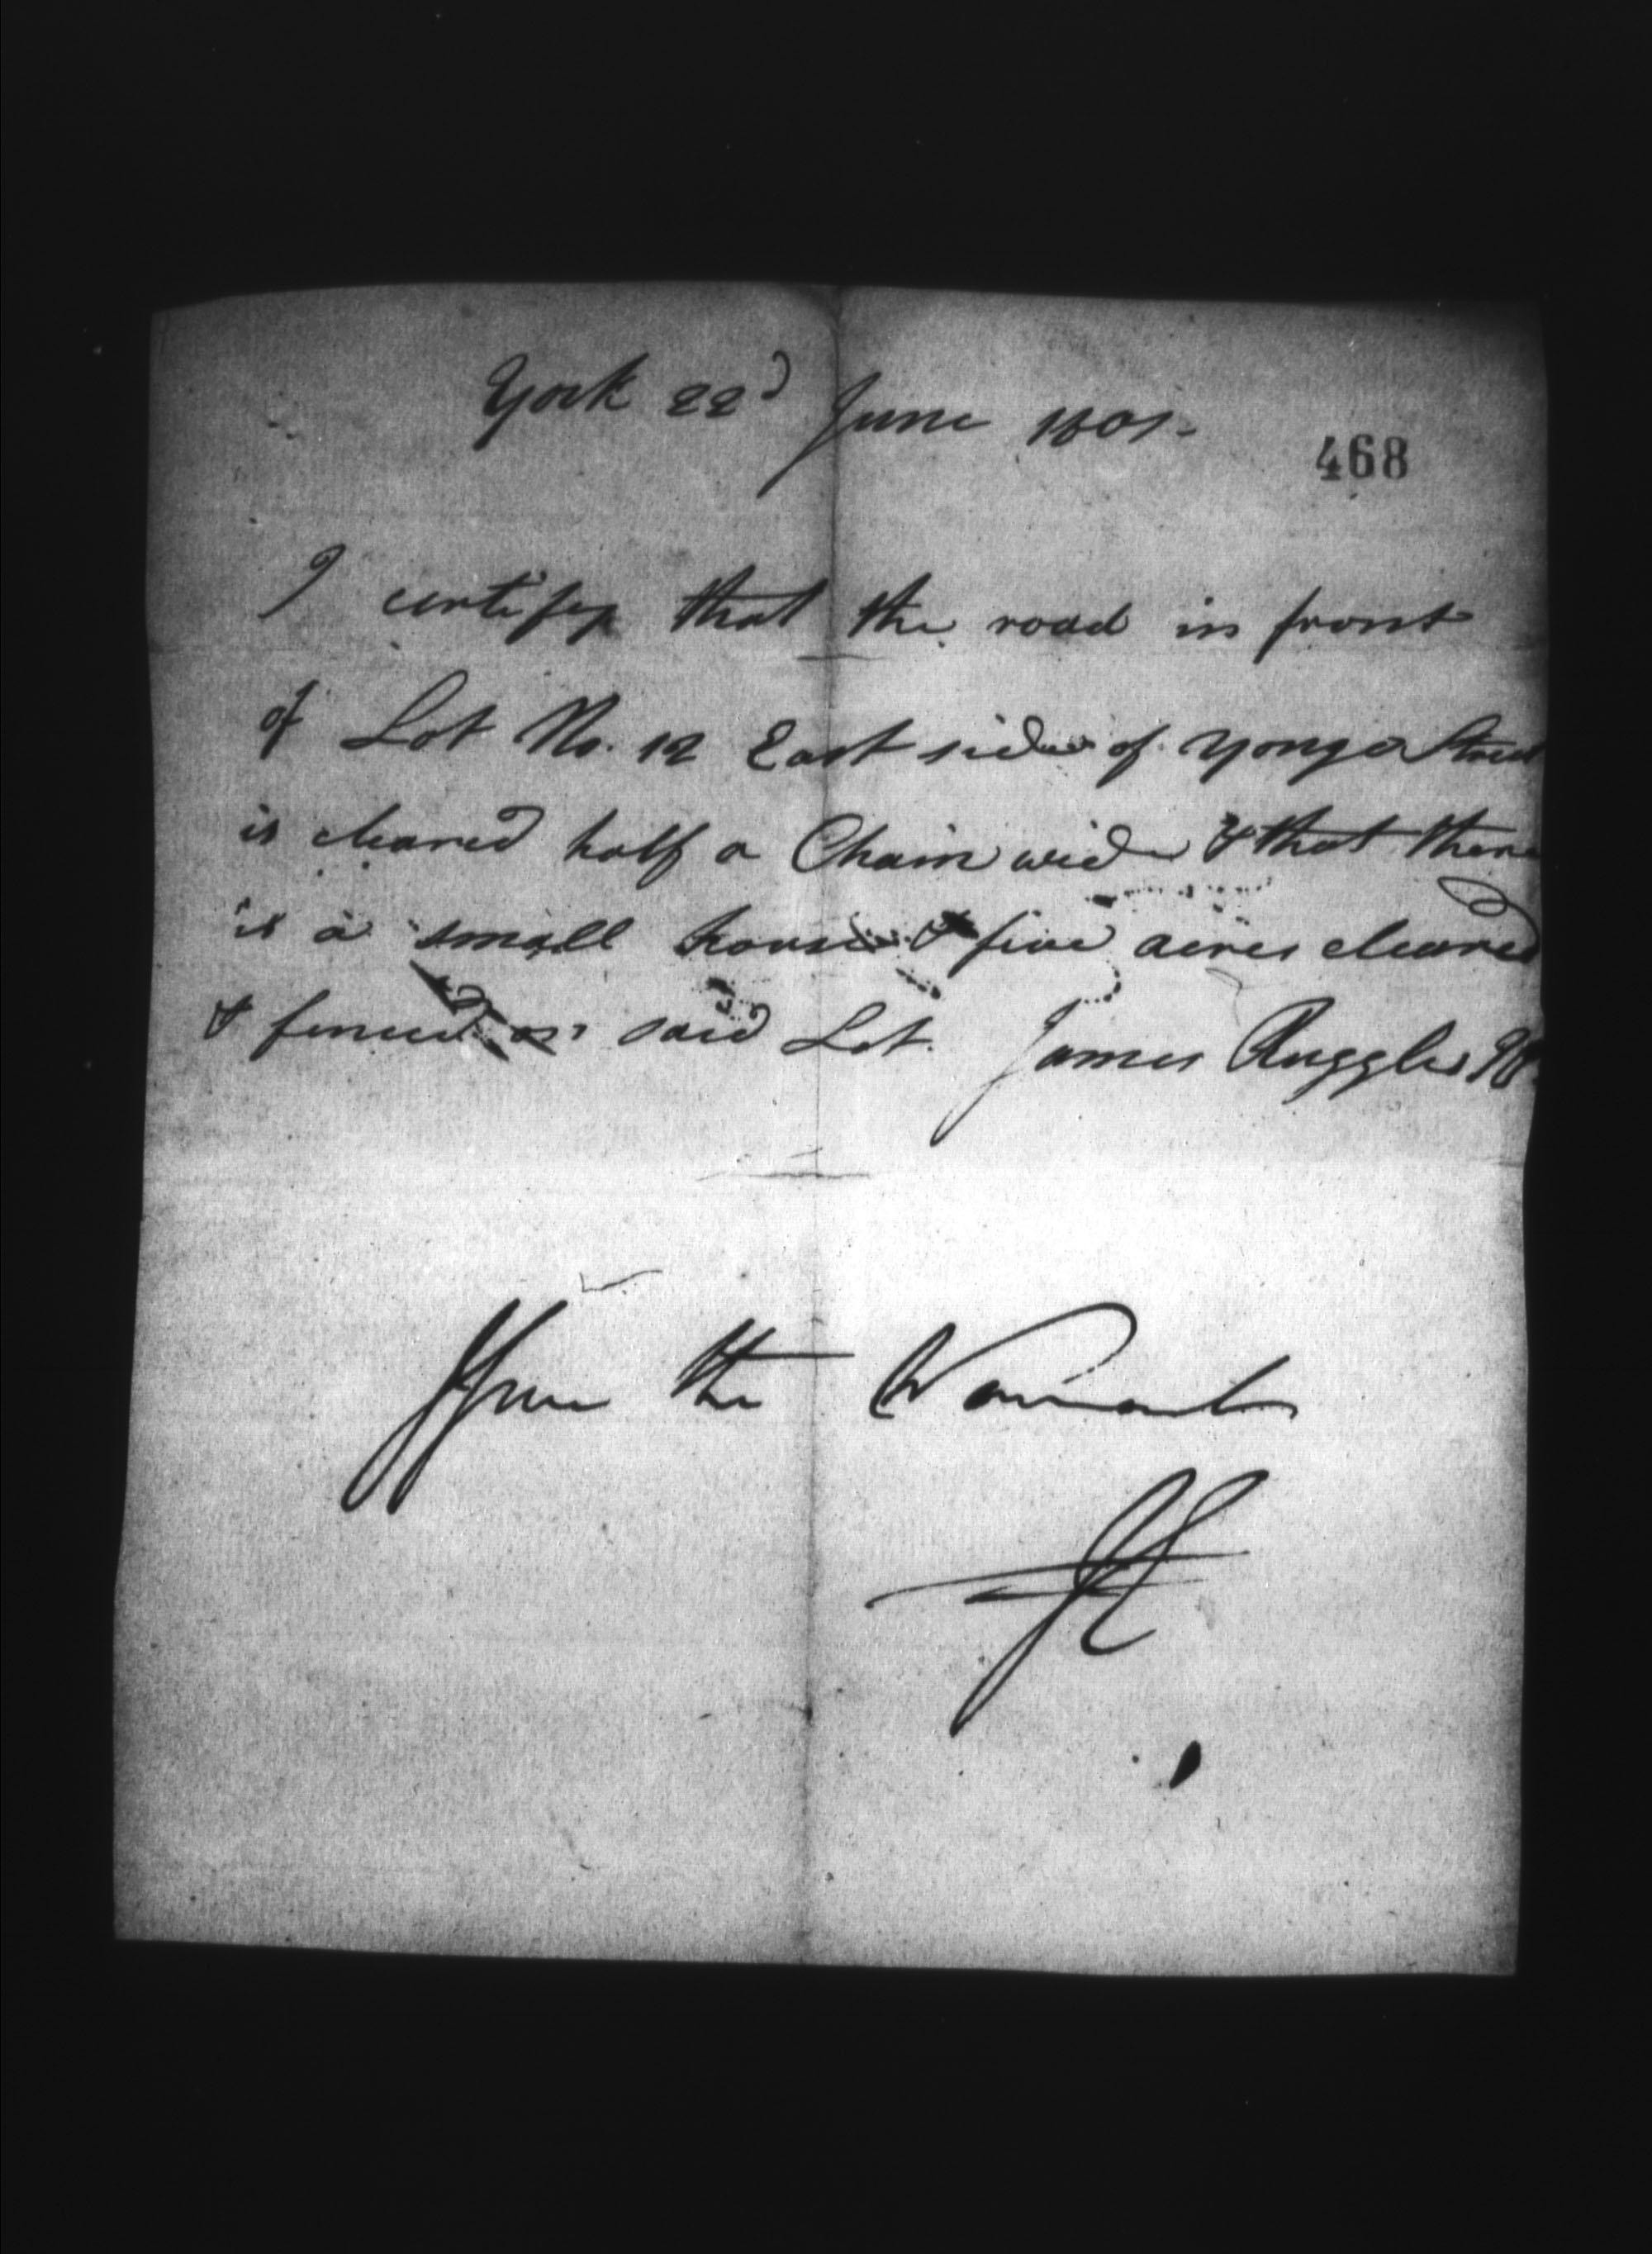 York 22d June 1801.
468
I certify that the road in front
of Lot No. 12 East side of Yonge Street
is cleared half a Chain wide & that there
is a small house & five acres cleared
& fenced on said Lot. James Ruggles JP.
the Warrant